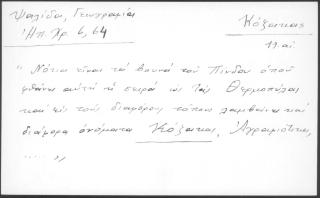 Ψαλίδα, Γεωγραφία
Ἠπ. Χρ. 6, 64
Κόζιακας
19. αἰ
"Νότια εἶναι τά βουνά τοῦ Πίνδου ὁποῦ
φθάνει αὐτή ἡ σειρά ὡς τάς Θερμοπύλας
καί εἰς τούς διαφόρους τόπους λαμβάνει καί
διάφορα ὀνόματα Κόζιακας, Ἀγραφιώτικα,
..... "